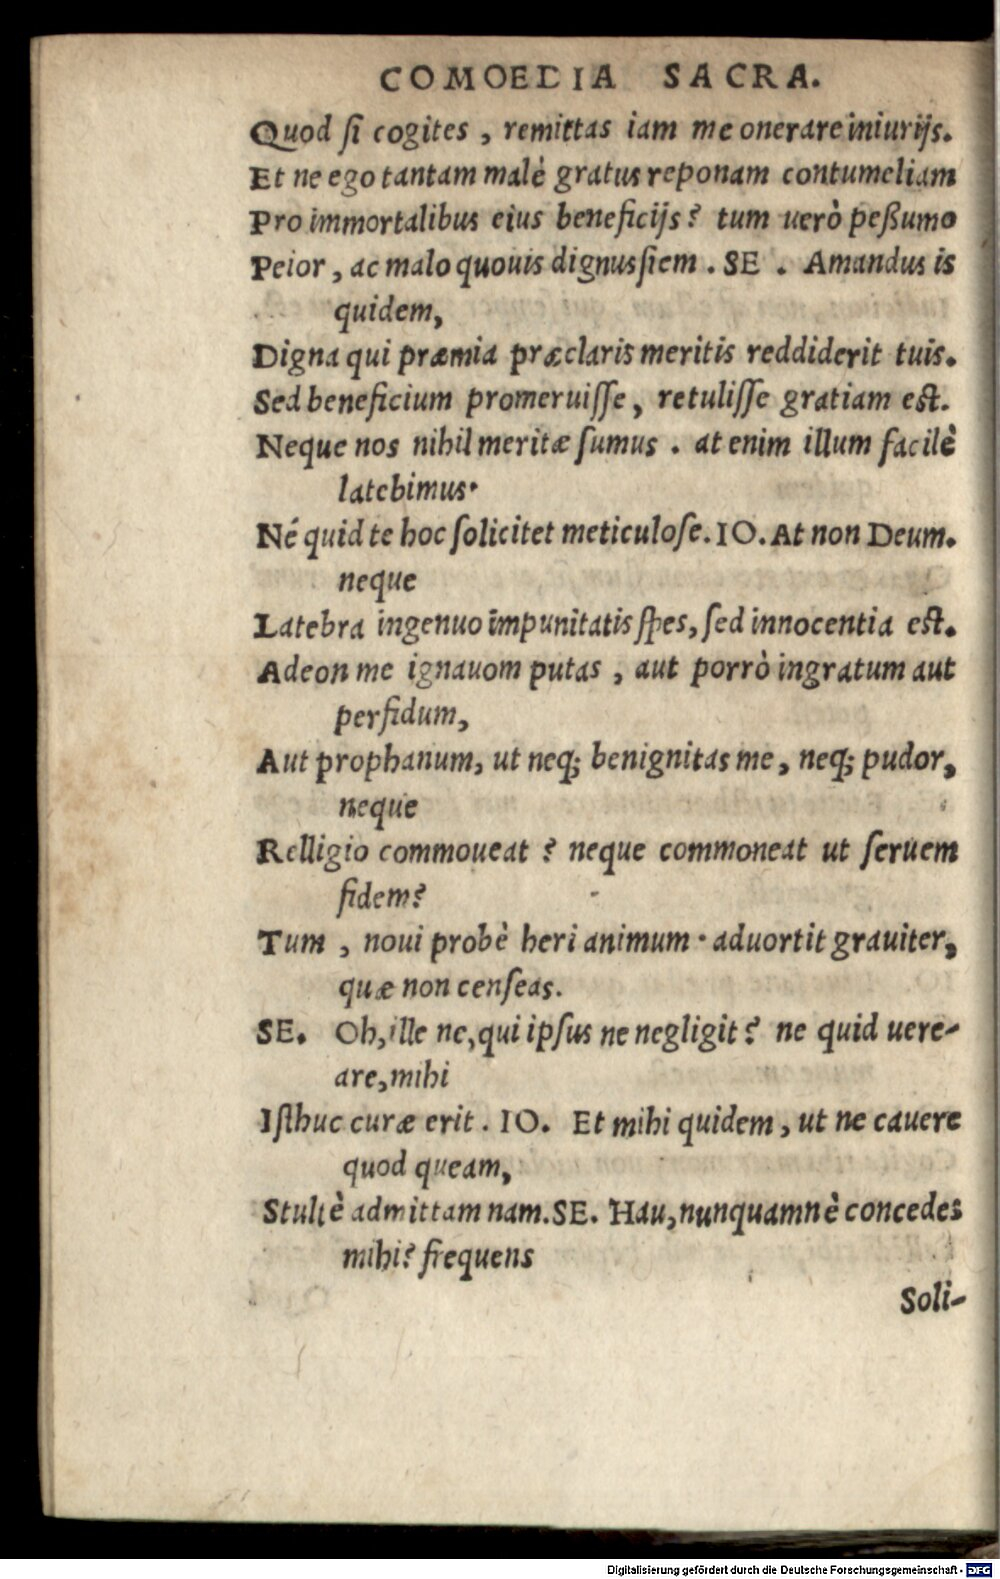 COMOEDIA SACRA.
Quod ſi cogites, remittas iam me onerare iniurijs.
Et ne ego tantam malè gratus reponam contumeliam
Pro immortalibus eius beneficijs? tum uerò peßumo
Peior, ac malo quouis dignus ſiem. SE. Amandus is
quidem,
Digna qui præmia præclaris meritis reddiderit tuis.
Sed beneficium promeruiſſe, retuliſſe gratiam est.
Neque nos nihil meritæ ſumus. at enim illum facilè
latebimus·
Né quid te hoc ſolicitet meticuloſe. IO. At non Deum.
neque
Latebra ingenuo impunitatis ſpes, ſed innocentia est.
Adeon me ignauom putas, aut porrò ingratum aut
perfidum,
Aut prophanum, ut neq; benignitas me, neq; pudor,
neque
Relligio commoueat? neque commoneat ut ſeruem
fidem?
Tum, noui probè heri animum· aduortit grauiter,
quæ non cenſeas.
SE. Oh, ille ne, qui ipſus ne negligit? ne quid uere-
are, mihi
Iſthuc curæ erit. IO. Et mihi quidem, ut ne cauere
quod queam,
Stultè admittam nam. SE. Hau, nunquamnè concedes
mihi? frequens
Soli-
Digitalisierung gefördert durch die Deutsche Forschungsgemeinschaft - DFG